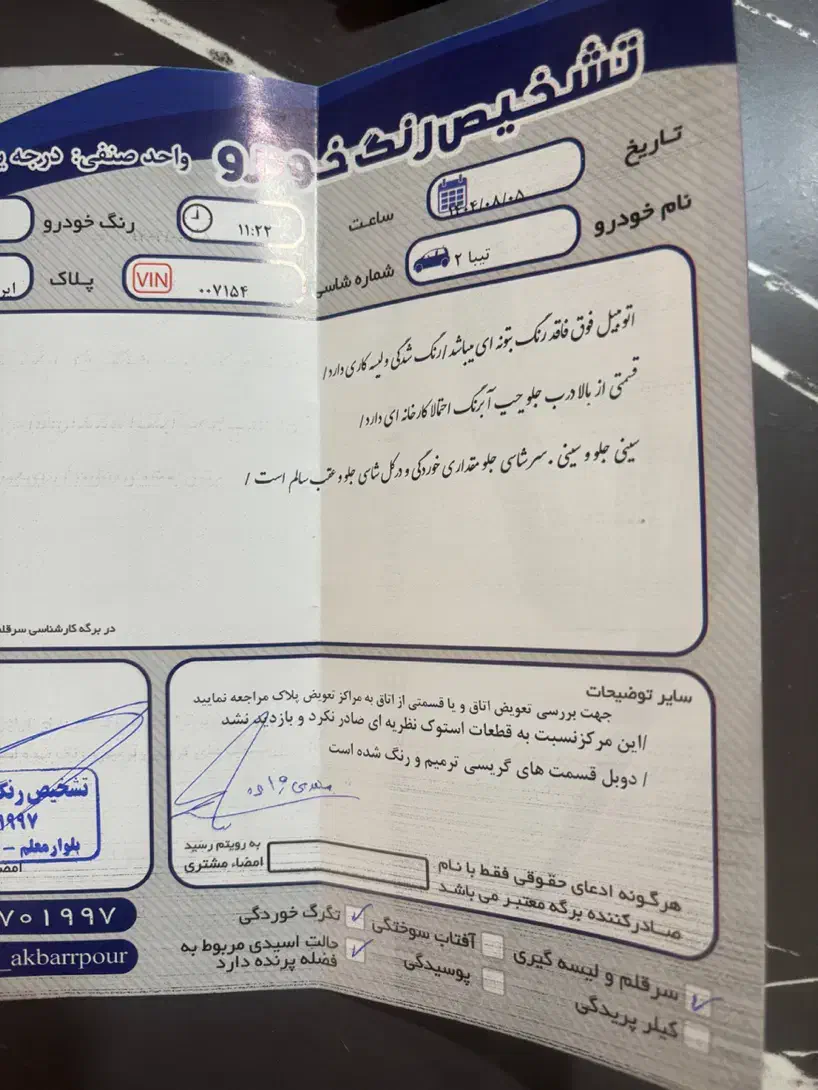 تشخیص رنگ خودرو
واحد صنفی: درجه
تاریخ ۱۴۰۴/۰۸/۰۵
ساعت ۱۱:۲۲
رنگ خودرو
نام خودرو تیبا ۲
شماره شاسی ۰۰۷۱۵۴ VIN
پلاک
اتومبیل فوق فاقد رنگ بتونه ای میباشد / رنگ شدگی و لیسه کاری دارد /
قسمتی از بالا درب جلو چپ آبرنگ احتمالا کارخانه ای دارد /
سینی جلو و سینی . سر شاسی جلو مقداری خوردگی و در کل شاسی جلو و عقب سالم است /
در برگه کارشناسی
سایر توضیحات
جهت بررسی تعویض اتاق و یا قسمتی از اتاق به مراکز تعویض پلاک مراجعه نمایید
/این مرکز نسبت به قطعات استوک نظریه ای صادر نکرد و بازدید نشد
/ دوبل قسمت های گریسی ترمیم و رنگ شده است
به رویتم رسید
امضاء مشتری
هرگونه ادعای حقوقی فقط با نام
صادرکننده برگه معتبر می باشد
تشخیص رنگ
۱۹۹۷
بلوار معلم -
۷۰۱۹۹۷
_akbarrpour
سرقلم و لیسه گیری
آفتاب سوختگی
تگرگ خوردگی
کیلر پریدگی
پوسیدگی
حالت اسیدی مربوط به
فضله پرنده دارد